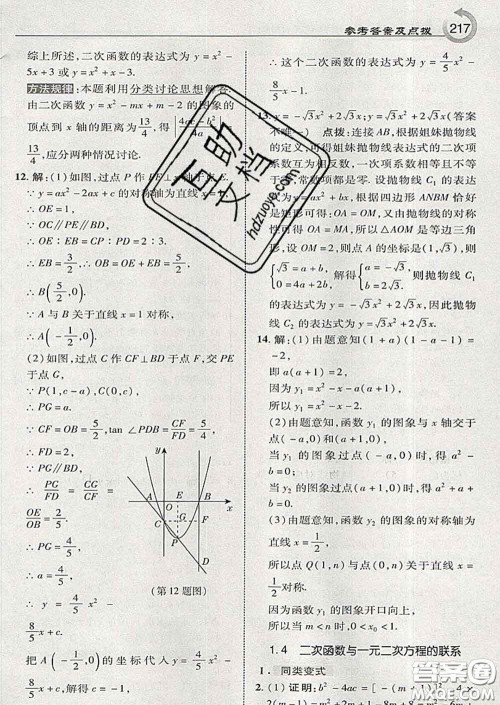 参考答案及点拨 217
综上所述,二次函数的表达式为 y = x² -
5x + 3 或 y = x² + x - 3.
方法规律:本题利用分类讨论思想解答.
由二次函数 y = x² - mx + m - 2 的图象的
顶点到 x 轴的距离为 13/4,得
13/4,应分两种情况讨论.
12. 解:(1)如图,过点 P 作 PE
∵ y = ax² - 2ax + c 的对称轴为直线 x =
∴ OE = 1.
∵ OC∥PE∥BD,
∴ OE:EB = CP:PD = 2:3.
∴ EB = 3/2,∴ OB = 5/2.
∴ B(5/2,0).
∵ A 与 B 关于直线 x = 1 对称,
∴ A(-1/2,0).
(2)如图,过点 C 作 CF⊥BD 于点 F,交
PE 于点 G,
∴ P(1,c-a),C(0,c).
∵ CF = OB = 5/2,tan ∠PDB = CF/FD = 5/4,
∴ FD = 2.
∵ PG∥FD,
∴ PG/FD = CG/CF =
OE/OB = 2/5.
∴ PG = 4/5.
∴ a = 4/5.
∴ y = 4/5 x² -
8/5 x + c.
A O E B x
C G F
P
D
(第 12 题图)
把 A(-1/2,0)的坐标代入 y = 4/5 x² -
8/5 x + c,得
∴ 这个二次函数的表达式为 y = 4/5 x² -
8/5 x - 1.
13. y = -√3x² + 2√3x(答案
不唯一) 点拨:连接 AB,根据姐妹抛物线
的定义,姐妹抛物线的表达式的二次项
系数互为相反数,一次项系数相等且不等于
零,常数项都是零. 设抛物线 C₁ 的表达
式为 y = ax² + bx,根据四边形 ANBM 恰好
是矩形可得:OA = OM,又由抛物线的对称
性可得:OA = MA,所以△AOM 是等边三角
形,设 OM = 2,则点 A 的坐标是(1,√3),
则 {√3 = a + b, 0 = 4a + 2b, 解得 {a = -√3, b = 2√3. 则抛物线 C₁
的表达式为 y = -√3x² + 2√3x,因此抛物
线 C₂ 的表达式为 y = √3x² + 2√3x.
14. 解:(1)由题意知(1 + a)(1 - a - 1) =
-2,
因为
所以 y₁ = x² - x - 2.
(2)由题意知,函数 y₁ 的图象与 x 轴交于
点(-a,0)和(a + 1,0),
当函数 y₂ 的图象经过点(-a,0)时,得 a² -
当函数 y₂ 的图象经过点(a + 1,0)时,得 a² +
(3)由题意知,函数 y₁ 的图象的对称轴为
直线 x =
所以点 Q(1,n)与点(0,n)关于直线 x = 1/2
对称.
因为函数 y₁ 的图象开口向上,
所以当 m < n 时,0 < x₀ < 1.
1.4 二次函数与一元二次方程的联系
1. 同类变式
(1)证明:b² - 4ac = [-(m + 1)]² - 4 ×
互助文档
hdzuoye.com